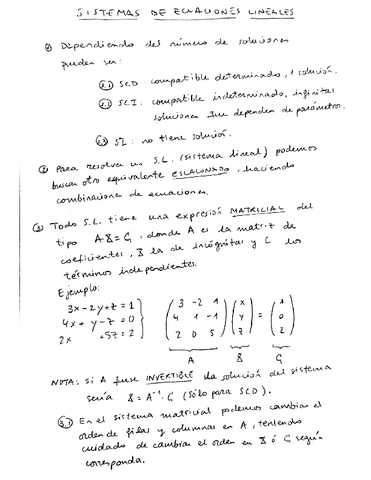 SISTEMAS DE ECUACIONES LINEALES
① Dependiendo del número de soluciones
pueden ser:
1.1) SCD: compatible determinado, 1 solución.
1.2) SCI: compatible indeterminado, infinitas
soluciones que dependen de parámetros.
1.3) SI: no tiene solución.
② Para resolver un S.L. (sistema lineal) podemos
buscar otro equivalente ESCALONADO, haciendo
combinaciones de ecuaciones.
③ Todo S.L. tiene una expresión MATRICIAL del
tipo AX=C, donde A es la matriz de
coeficientes, X la de incógnitas y C los
términos independientes.
Ejemplo:
3x-2y+z=1
4x+y-z=0
2x +5z=2
(3 -2 1) (x) (1)
(4 1 -1) (y) = (0)
(2 0 5) (z) (2)
A X C
NOTA: si A fuese INVERTIBLE la solución del sistema
sería X=A⁻¹·C (sólo para SCD).
3.1) En el sistema matricial podemos cambiar el
orden de filas y columnas en A, teniendo
cuidado de cambiar el orden en X ó C según
corresponda.